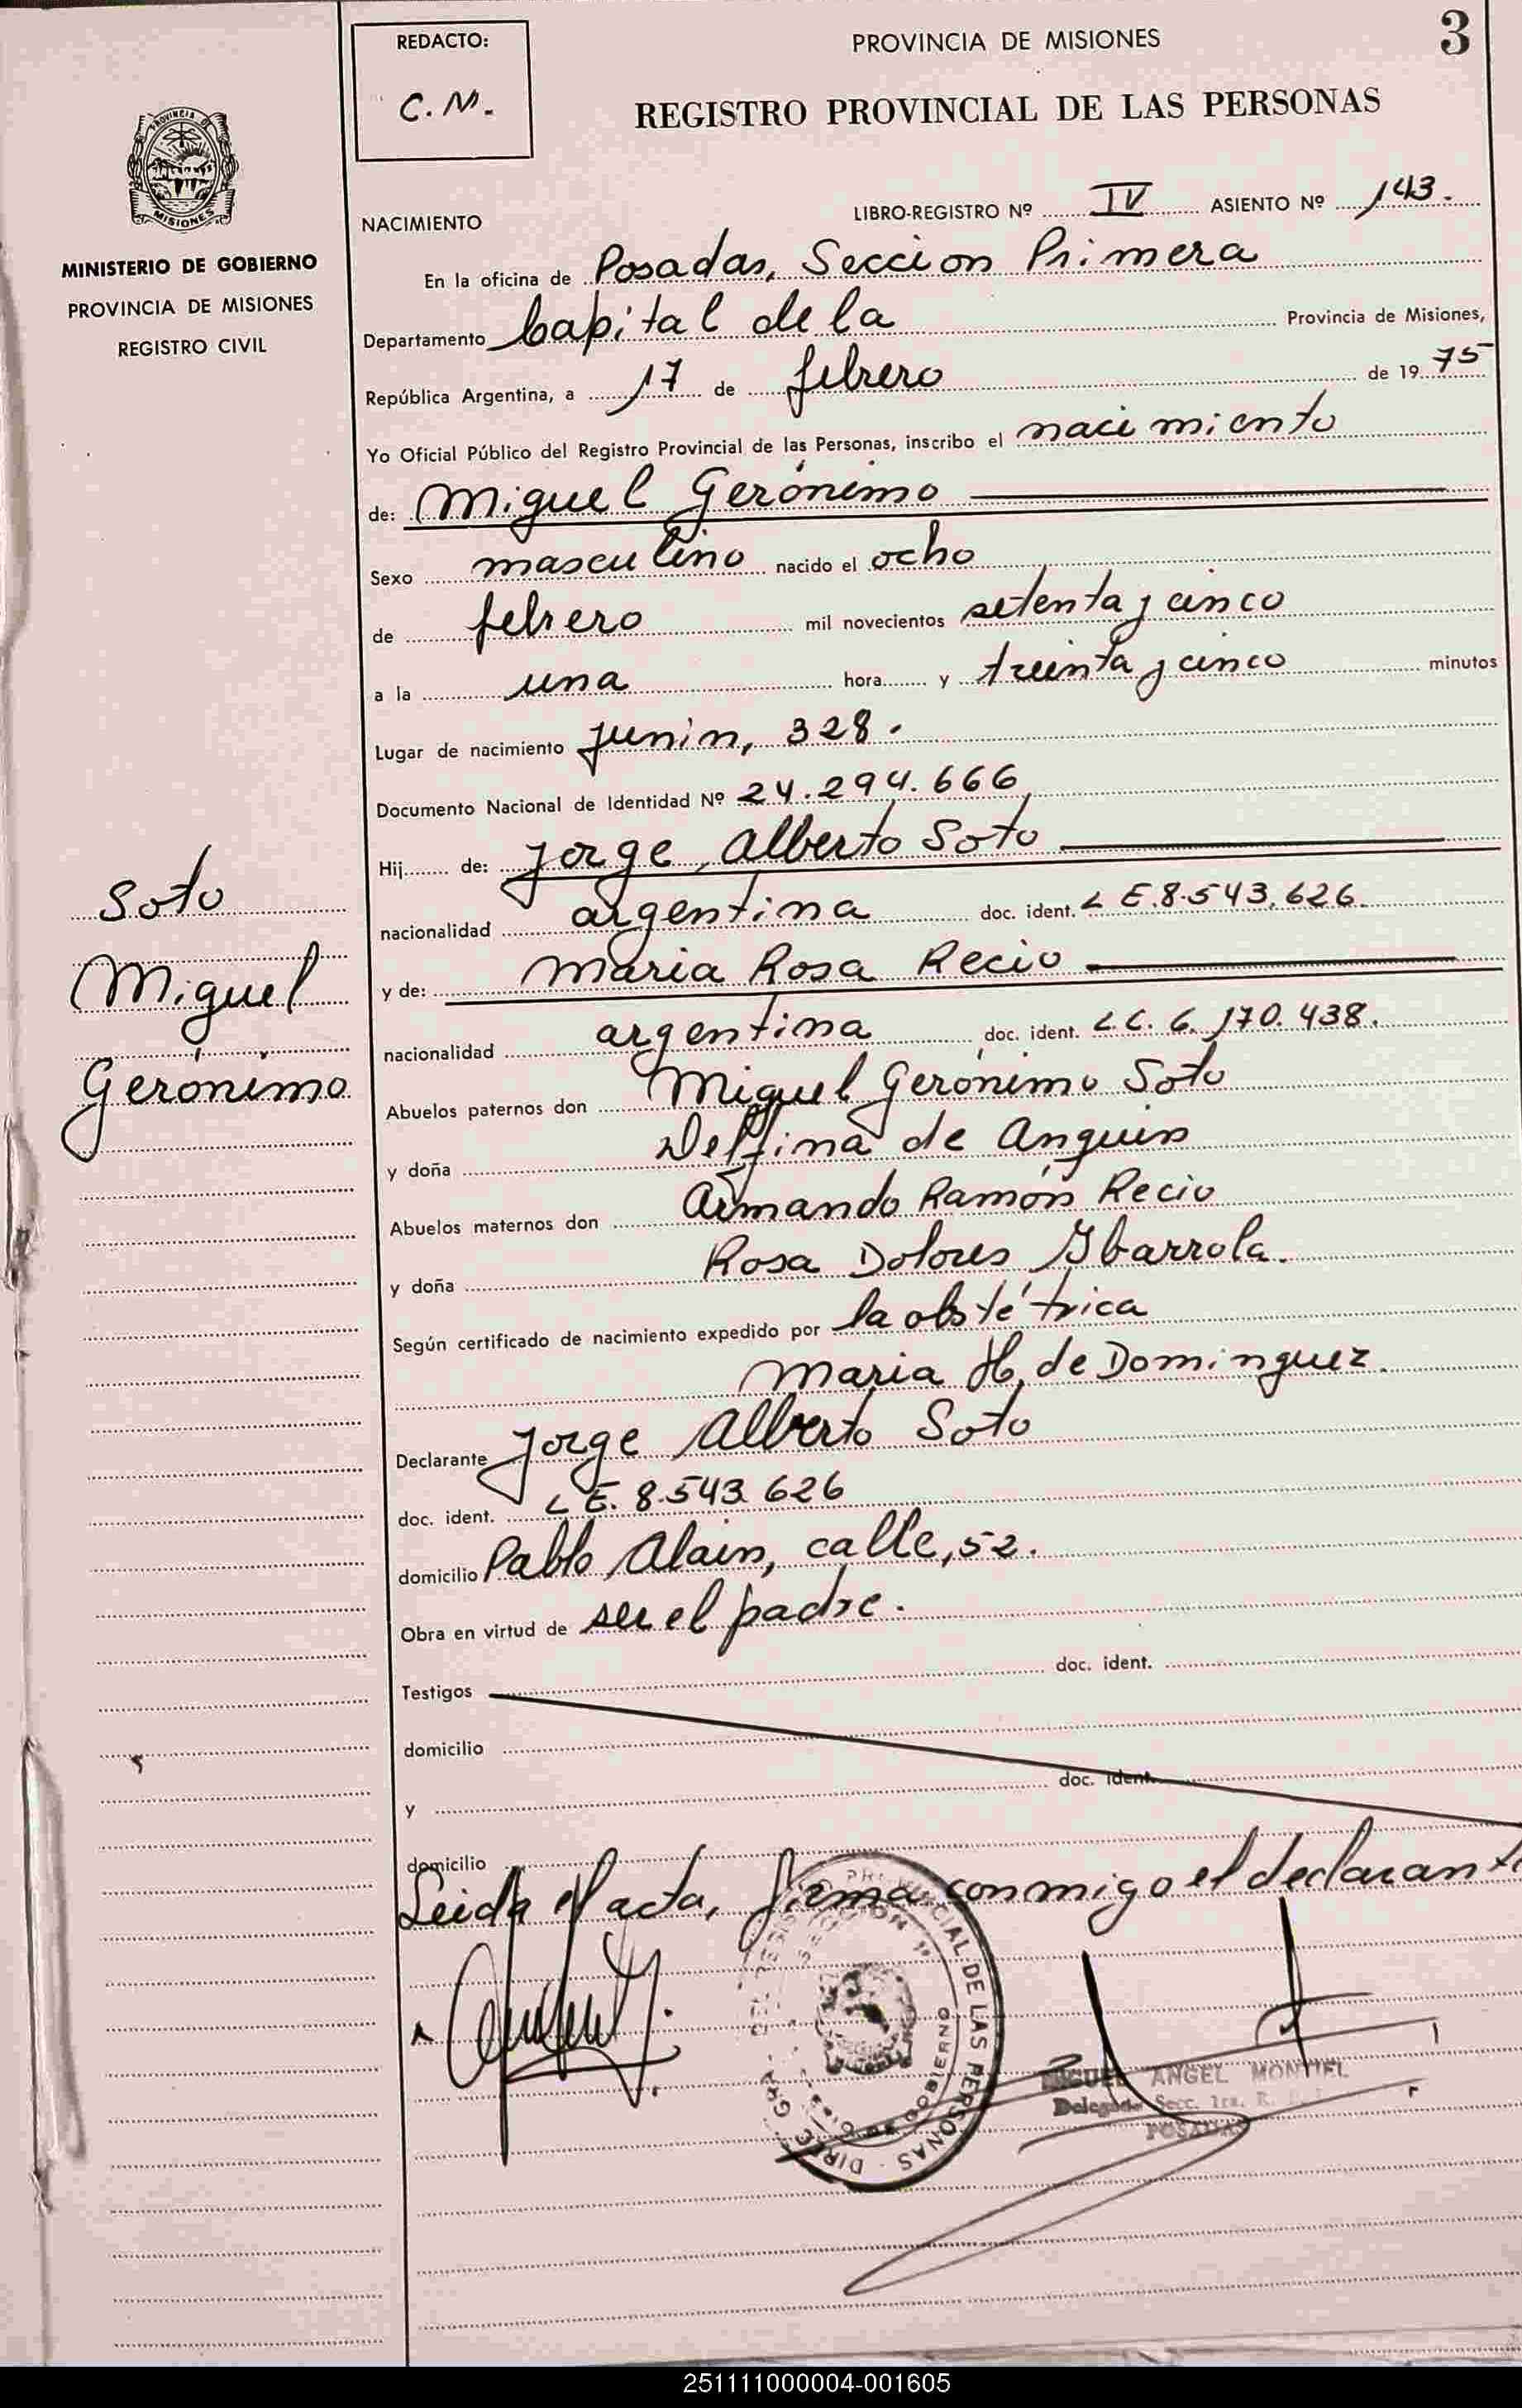 REDACTO:
C.M.
PROVINCIA DE MISIONES
3
REGISTRO PROVINCIAL DE LAS PERSONAS
PROVINCIA D
MISIONES
MINISTERIO DE GOBIERNO
PROVINCIA DE MISIONES
REGISTRO CIVIL
NACIMIENTO
LIBRO-REGISTRO Nº IV ASIENTO Nº 143.
En la oficina de Posadas, Seccion Primera
Departamento Capital de la Provincia de Misiones,
República Argentina, a 17 de febrero de 1975
Yo Oficial Público del Registro Provincial de las Personas, inscribo el nacimiento
de: Miguel Gerónimo
Sexo masculino nacido el ocho
de febrero mil novecientos setenta y cinco
a la una hora y treinta y cinco minutos
Lugar de nacimiento Junin, 328.
Documento Nacional de Identidad Nº 24.294.666
Hij de: Jorge Alberto Soto
nacionalidad argentina doc. ident. L E. 8.543.626.
y de: Maria Rosa Recio
nacionalidad argentina doc. ident. L.C. 6.170.438.
Abuelos paternos don Miguel Gerónimo Soto
y doña Delfina de Anguis
Abuelos maternos don Armando Ramón Recio
y doña Rosa Dolores Ybarrola.
Según certificado de nacimiento expedido por la obstétrica
Maria H. de Dominguez.
Declarante Jorge Alberto Soto
doc. ident. L E. 8.543.626
domicilio Pablo Alain, calle, 52.
Obra en virtud de ser el padre.
Testigos doc. ident.
domicilio
y doc. ident.
domicilio
Leida el acta, firma conmigo el declarant
Soto
Miguel
Gerónimo
PROVINCIAL DE LAS PERSONAS - DIREC. GRAL.
SECCION 1ª
GOBIERNO
MIGUEL ANGEL MONTIEL
Delegado Secc. 1ra.
POSADAS
251111000004-001605